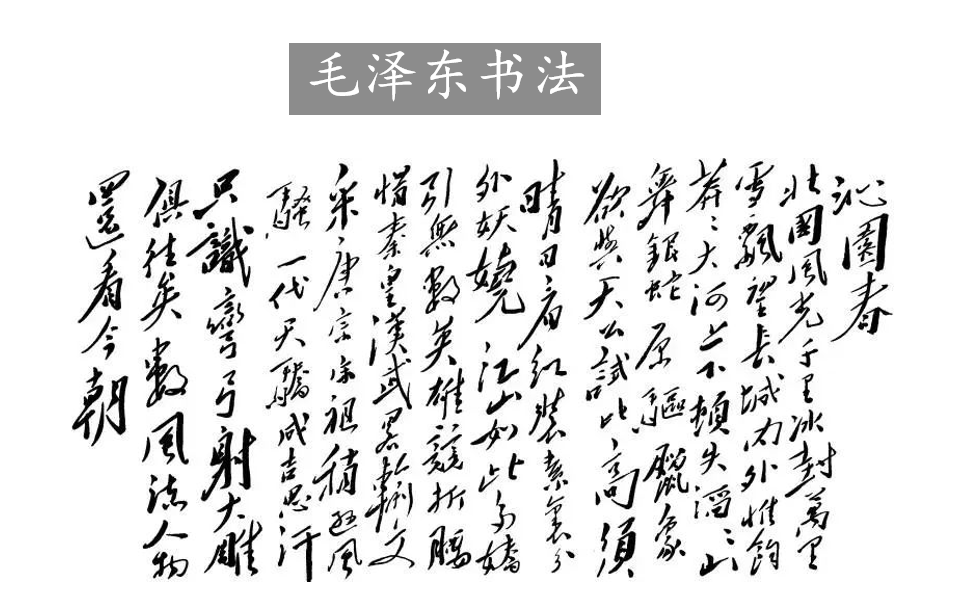 毛泽东书法
沁園春
北國風光千里冰封萬里
雪飄望長城内外惟餘
莽〻大河上下頓失滔〻山
舞銀蛇原驅臘象
欲與天公試比高須
晴日看紅裝素裹分
外妖嬈江山如此多嬌
引無數英雄競折腰
惜秦皇漢武畧輸文
采唐宗宋祖稍遜風
騷一代天驕成吉思汗
只識彎弓射大雕
俱往矣數風流人物
還看今朝